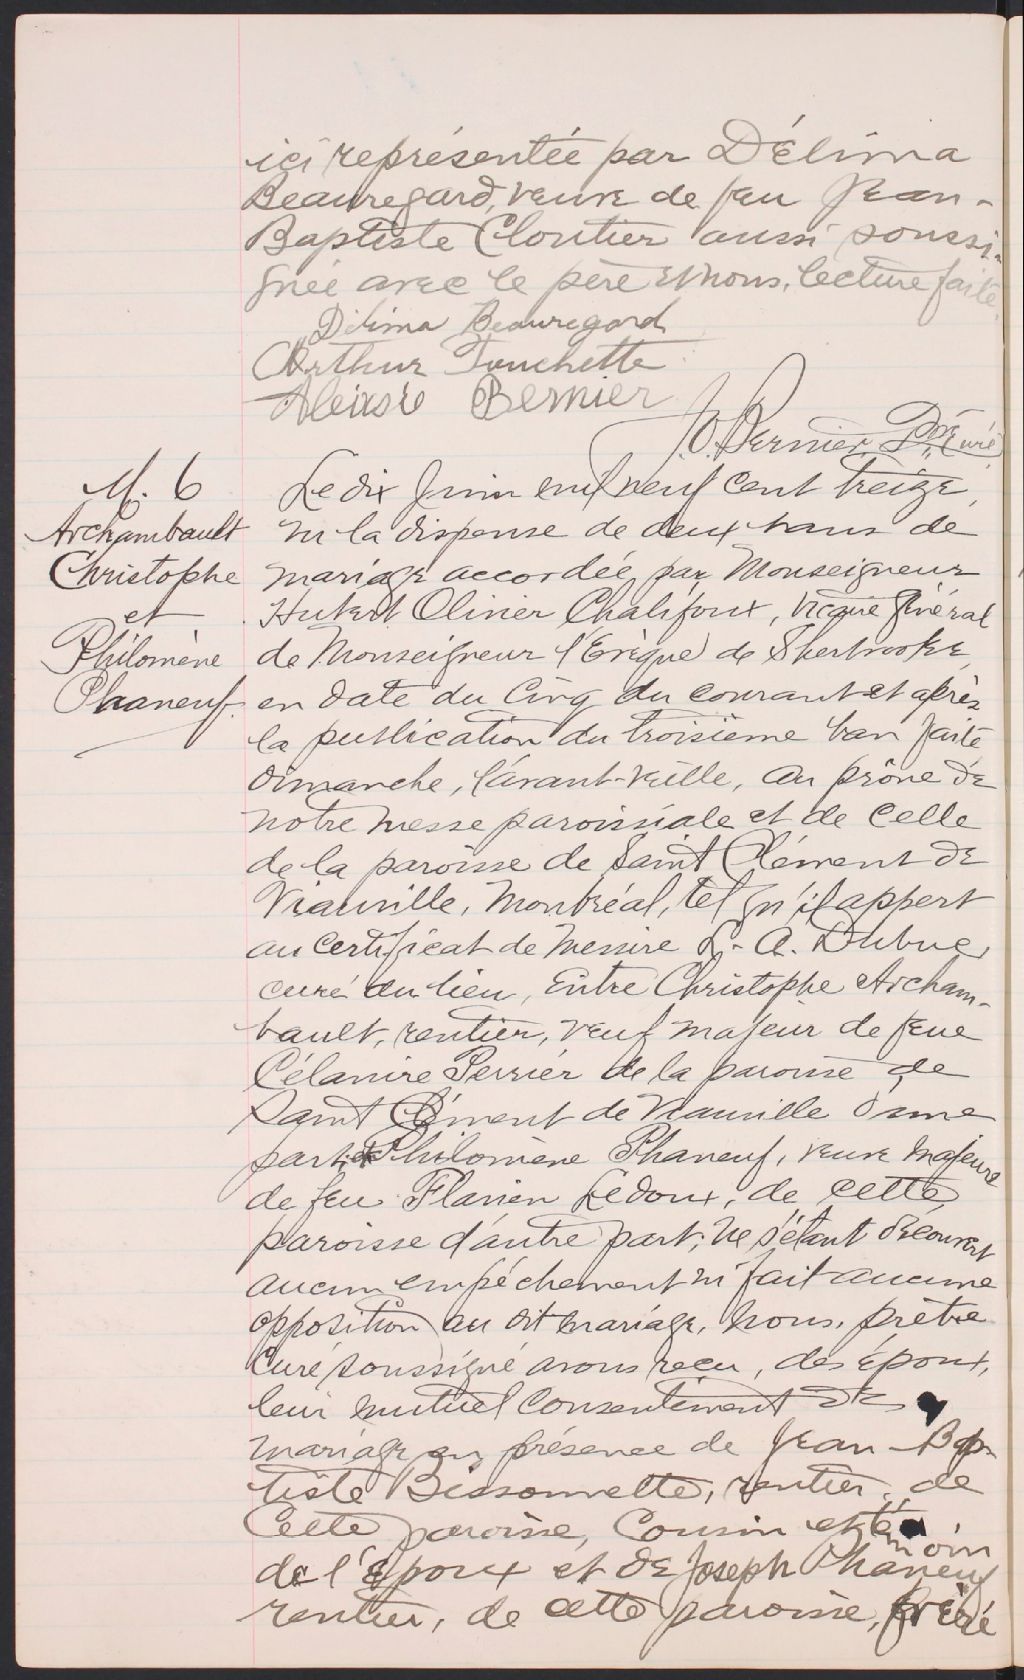 ici représentée par Délima
Beauregard, veuve de feu Jean-
Baptiste Cloutier aussi soussi-
gnée avec le père et nous, lecture faite.
Délima Beauregard
Arthur Touchette
Alexsie Bernier
J. O. Bernier, Ptre Curé
M. 6
Archambault
Christophe
et
Philomène
Phaneuf.
Le dix Juin mil neuf cent treize,
vu la dispense de deux bans de
mariage accordée par Monseigneur
Hubert Olivier Chalifoux, Vicaire Général
de Monseigneur l'Evèque de Sherbrooke,
en date du cinq du courant et après
la publication du troisième ban faite
dimanche, l'avant-veille, au prône de
notre messe paroissiale et de celle
de la paroisse de Saint Clément de
Viauville, Montréal, tel qu'il appert
au certificat de Messire L. A. Dubuc,
curé du lieu, Entre Christophe Archam-
bault, rentier, veuf majeur de feue
Célanire Perrier de la paroisse de
Saint Clément de Viauville d'une
part, et Philomène Phaneuf, veuve majeure
de feu Flavien Ledoux, de cette
paroisse d'autre part; ne s'étant découvert
aucun empéchement ni fait aucune
opposition au dit mariage, Nous, prêtre
curé soussigné avons reçu, des époux,
leur mutuel consentement de
mariage en présence de Jean-Bap-
tiste Bissonnette, rentier, de
cette paroisse, Cousin et témoin
de l'époux et de Joseph Phaneuf
rentier, de cette paroisse, frère